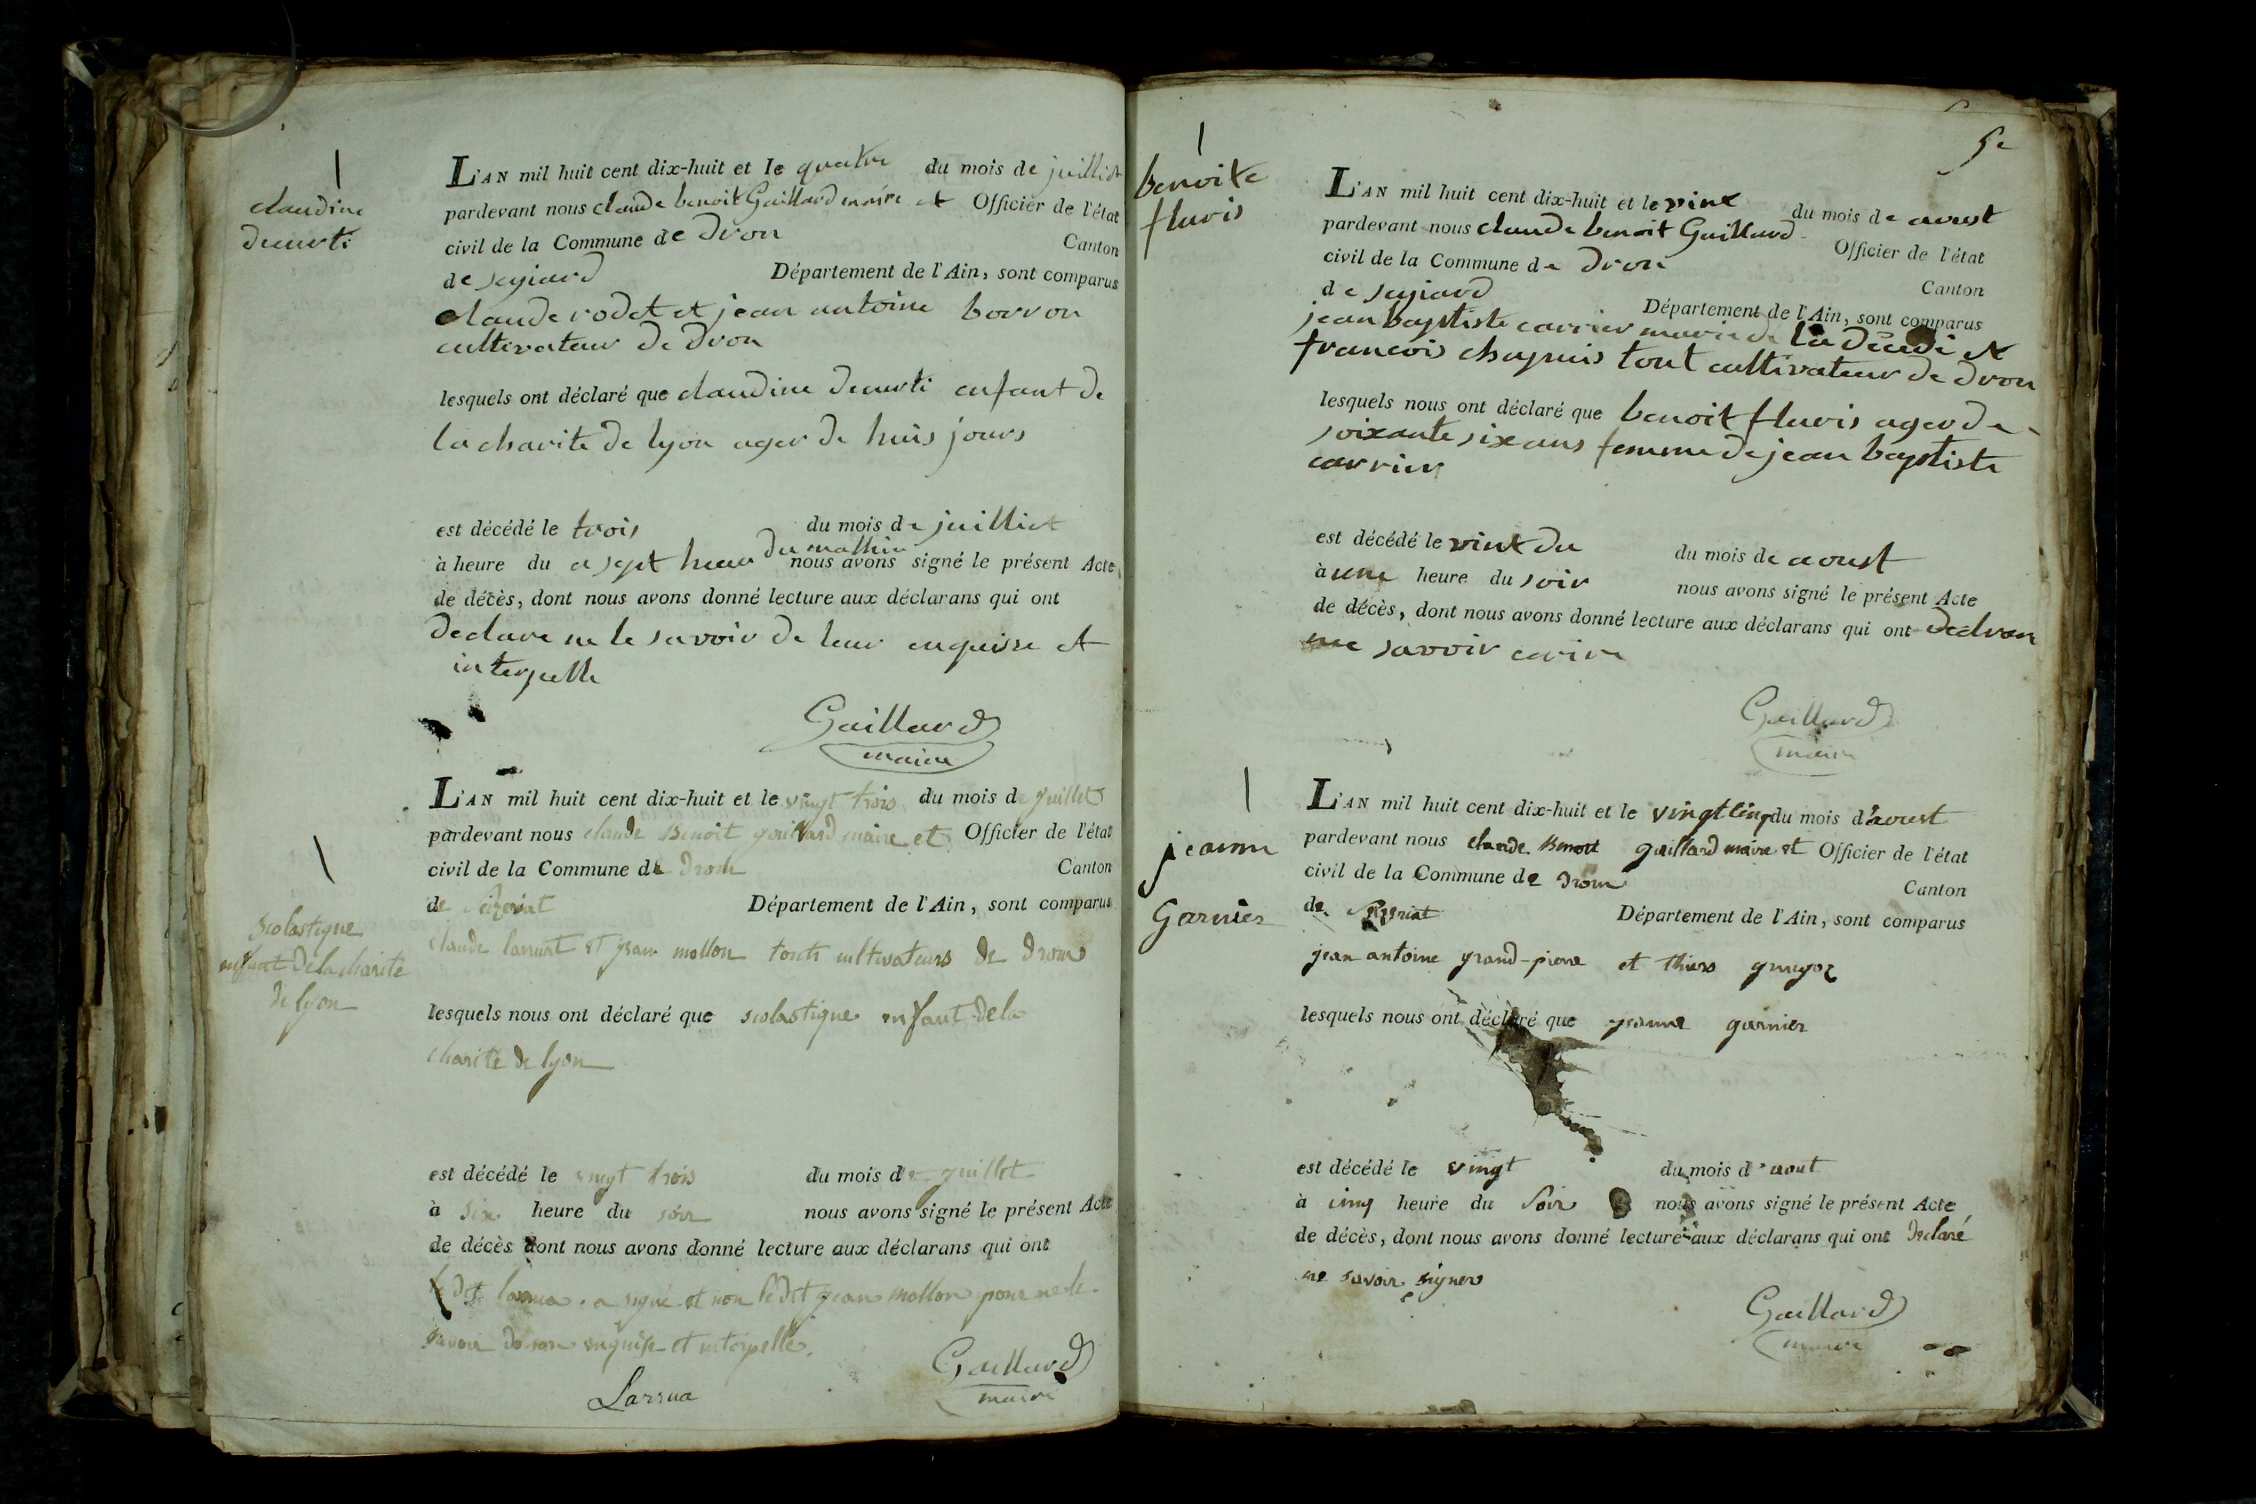 claudine
decurti
L'AN mil huit cent dix-huit et le quatre du mois de juilliet
pardevant nous claude benoit Gaillard maire et Officier de l'état
civil de la Commune de dron Canton
de sejiard Département de l'Ain, sont comparus
claude rodet et jean antoine borron
cultivateur de dron
lesquels ont déclaré que claudine decurti enfant de
la charite de lyon ager de huis jours
est décédé le trois du mois de juilliet
à heure du a sept heur du mathin nous avons signé le présent Acte
de décès, dont nous avons donné lecture aux déclarans qui ont
declare ne le savoir de leur enquisse et
interpelle
Gaillard
maire
scolastique
enfant de la charité
de lyon
L'AN mil huit cent dix-huit et le vingt trois du mois de juillet
pardevant nous claude Benoit gaillard maire et Officier de l'état
civil de la Commune de drom Canton
de Département de l'Ain, sont comparus
claude larruat et jean mollon touts cultivateurs de drom
lesquels nous ont déclaré que scolastique enfant de la
charité de lyon
est décédé le vingt trois du mois de juillet
à six heure du soir nous avons signé le présent Acte
de décès dont nous avons donné lecture aux déclarans qui ont
le dit larrua a signé et non le dit jean mollon pour ne le
savoir de son enquise et interpellé.
Larrua
Gaillard
maire
5e
benoite
fluris
L'AN mil huit cent dix-huit et le vint du mois de aoust
pardevant nous claude benoit Gaillard Officier de l'état
civil de la Commune de dron Canton
de sejiard Département de l'Ain, sont comparus
jean baptiste carrier marie de la et
francois chapuis tout cultivateur de dron
lesquels nous ont déclaré que benoit fluris ager de
soixante six ans femme de jean baptiste
carrier
est décédé le vint du du mois de aoust
à une heure du soir nous avons signé le présent Acte
de décès, dont nous avons donné lecture aux déclarans qui ont
ne savoir ecrire
Gaillard
maire
jeanne
Garnier
L'AN mil huit cent dix-huit et le vingt cinq du mois d'aoust
pardevant nous claude Benoit gaillard maire et Officier de l'état
civil de la Commune de drom Canton
de Département de l'Ain, sont comparus
jean antoine grand-pierre et
lesquels nous ont déclaré que jeanne garnier
est décédé le vingt du mois d'aout
à cinq heure du soir nous avons signé le présent Acte
de décès, dont nous avons donné lecture aux déclarans qui ont declaré
ne savoir signer
Gaillard
maire